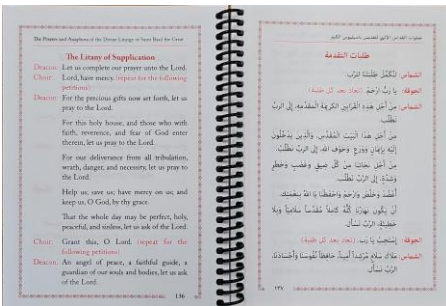 The Prayers and Anaphora of the Divine Liturgy of Saint Basil the Great
The Litany of Supplication
Deacon: Let us complete our prayer unto the Lord.
Choir: Lord, have mercy. (repeat for the following
petitions)
Deacon: For the precious gifts now set forth, let us
pray to the Lord.
For this holy house, and those who with
faith, reverence, and fear of God enter
therein, let us pray to the Lord.
For our deliverance from all tribulation,
wrath, danger, and necessity, let us pray to
the Lord.
Help us; save us; have mercy on us; and
keep us, O God, by thy grace.
That the whole day may be perfect, holy,
peaceful, and sinless, let us ask of the Lord.
Choir: Grant this, O Lord. (repeat for the
following petitions)
Deacon: An angel of peace, a faithful guide, a
guardian of our souls and bodies, let us ask
of the Lord.
136
طلبات التقدمة
الشماس: لنكمل طلباتنا للرب.
الجوقة: يا رب ارحم. (تعاد بعد كل طلبة)
الشماس: من أجل هذه القرابين الكريمة المقدمة، إلى الرب
نطلب.
من أجل هذا البيت المقدس، والذين يدخلون
إليه بإيمان وورع وخوف الله، إلى الرب نطلب.
من أجل نجاتنا من كل ضيق وغضب وخطر
وشدة، إلى الرب نطلب.
أعضد وخلص وارحم واحفظنا يا الله بنعمتك.
أن يكون نهارنا كله كاملاً مقدساً سلامياً وبلا
خطيئة، الرب نسأل.
الجوقة: إستجب يا رب. (تعاد بعد كل طلبة)
الشماس: ملاك سلام مرشداً أميناً، حافظاً نفوسنا وأجسادنا،
الرب نسأل.
١٣٧